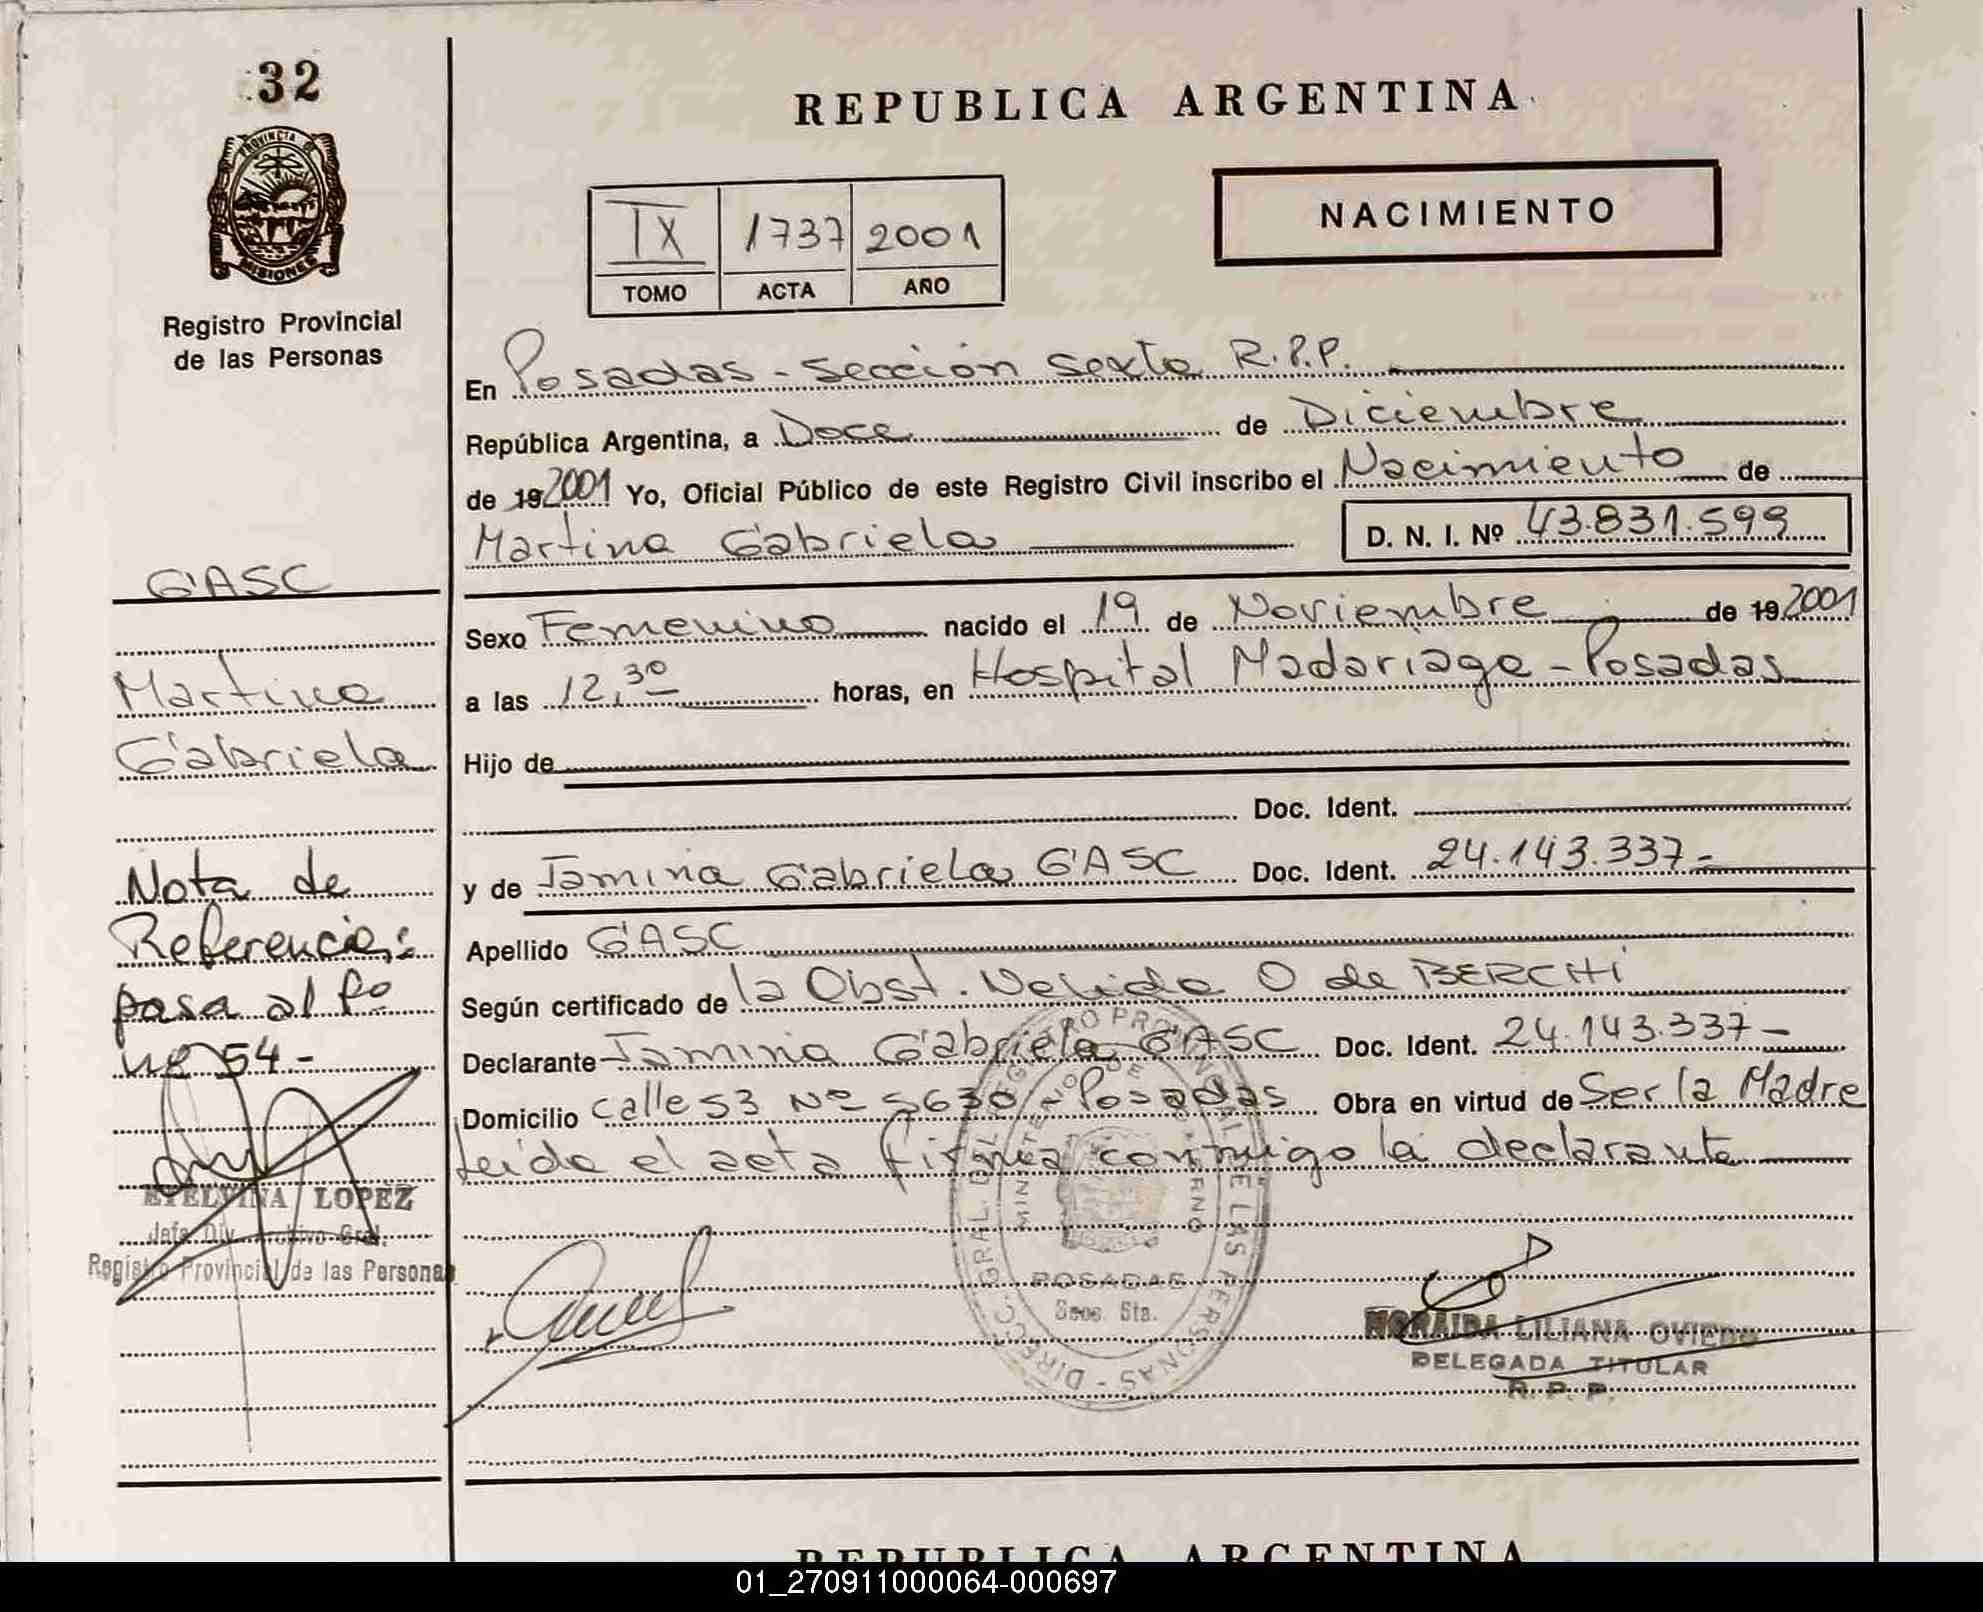 32
PROVINCIA DE
MISIONES
Registro Provincial
de las Personas
GASC
Martina
Gabriela
Nota de
Referencia:
pasa al fº
nº 54-
ETELVINA LOPEZ
Jefa Div. Archivo Gral.
Registro Provincial de las Personas
REPUBLICA ARGENTINA
NACIMIENTO
IX 1737 2001
TOMO ACTA AÑO
En Posadas - Sección Sexta R.P.P.
República Argentina, a Doce de Diciembre
de 192001 Yo, Oficial Público de este Registro Civil inscribo el Nacimiento de
Martina Gabriela D. N. I. Nº 43.831.599
Sexo Femenino nacido el 19 de Noviembre de 192001
a las 12,30 horas, en Hospital Madariaga - Posadas
Hijo de
Doc. Ident.
y de Jamina Gabriela GASC Doc. Ident. 24.143.337-
Apellido GASC
Según certificado de la Obst. Nelida O de BERCHI
Declarante Jamina Gabriela GASC Doc. Ident. 24.143.337-
Domicilio calle 53 Nº 5630 - Posadas Obra en virtud de Ser la Madre
Leída el acta firma conmigo la declarante
DIRECC. GRAL. DEL REGISTRO PROVINCIAL DE LAS PERSONAS -
MINISTERIO DE GOBIERNO
POSADAS
Secc. 6ta.
MORAIDA LILIANA OVIEDO
DELEGADA TITULAR
R. P. P.
REPUBLICA ARGENTINA
01_270911000064-000697